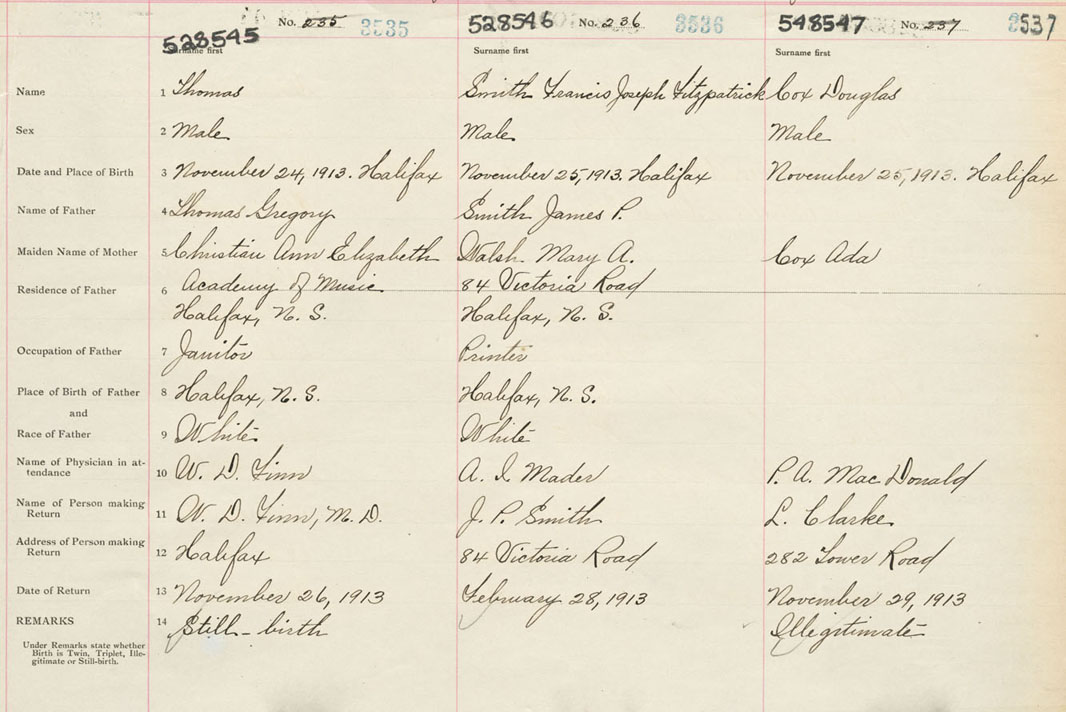 No. 235 3535 528546 No. 236 3536 548547 No. 237 3537
528545
Surname first Surname first Surname first
Name 1 Thomas Smith Francis Joseph Fitzpatrick Cox Douglas
Sex 2 Male Male Male
Date and Place of Birth 3 November 24, 1913. Halifax November 25, 1913. Halifax November 25, 1913. Halifax
Name of Father 4 Thomas Gregory Smith James P.
Maiden Name of Mother 5 Christian Ann Elizabeth Walsh Mary A. Cox Ada
Residence of Father 6 Academy of Music 84 Victoria Road
Halifax, N. S. Halifax, N. S.
Occupation of Father 7 Janitor Printer
Place of Birth of Father 8 Halifax, N. S. Halifax, N. S.
and
Race of Father 9 White White
Name of Physician in at-
tendance 10 W. D. Finn A. I. Mader P. A. Mac Donald
Name of Person making
Return 11 W. D. Finn, M. D. J. P. Smith L. Clarke
Address of Person making
Return 12 Halifax 84 Victoria Road 282 Tower Road
Date of Return 13 November 26, 1913 February 28, 1913 November 29, 1913
REMARKS 14 Still-birth Illegitimate
Under Remarks state whether
Birth is Twin, Triplet, Ille-
gitimate or Still-birth.